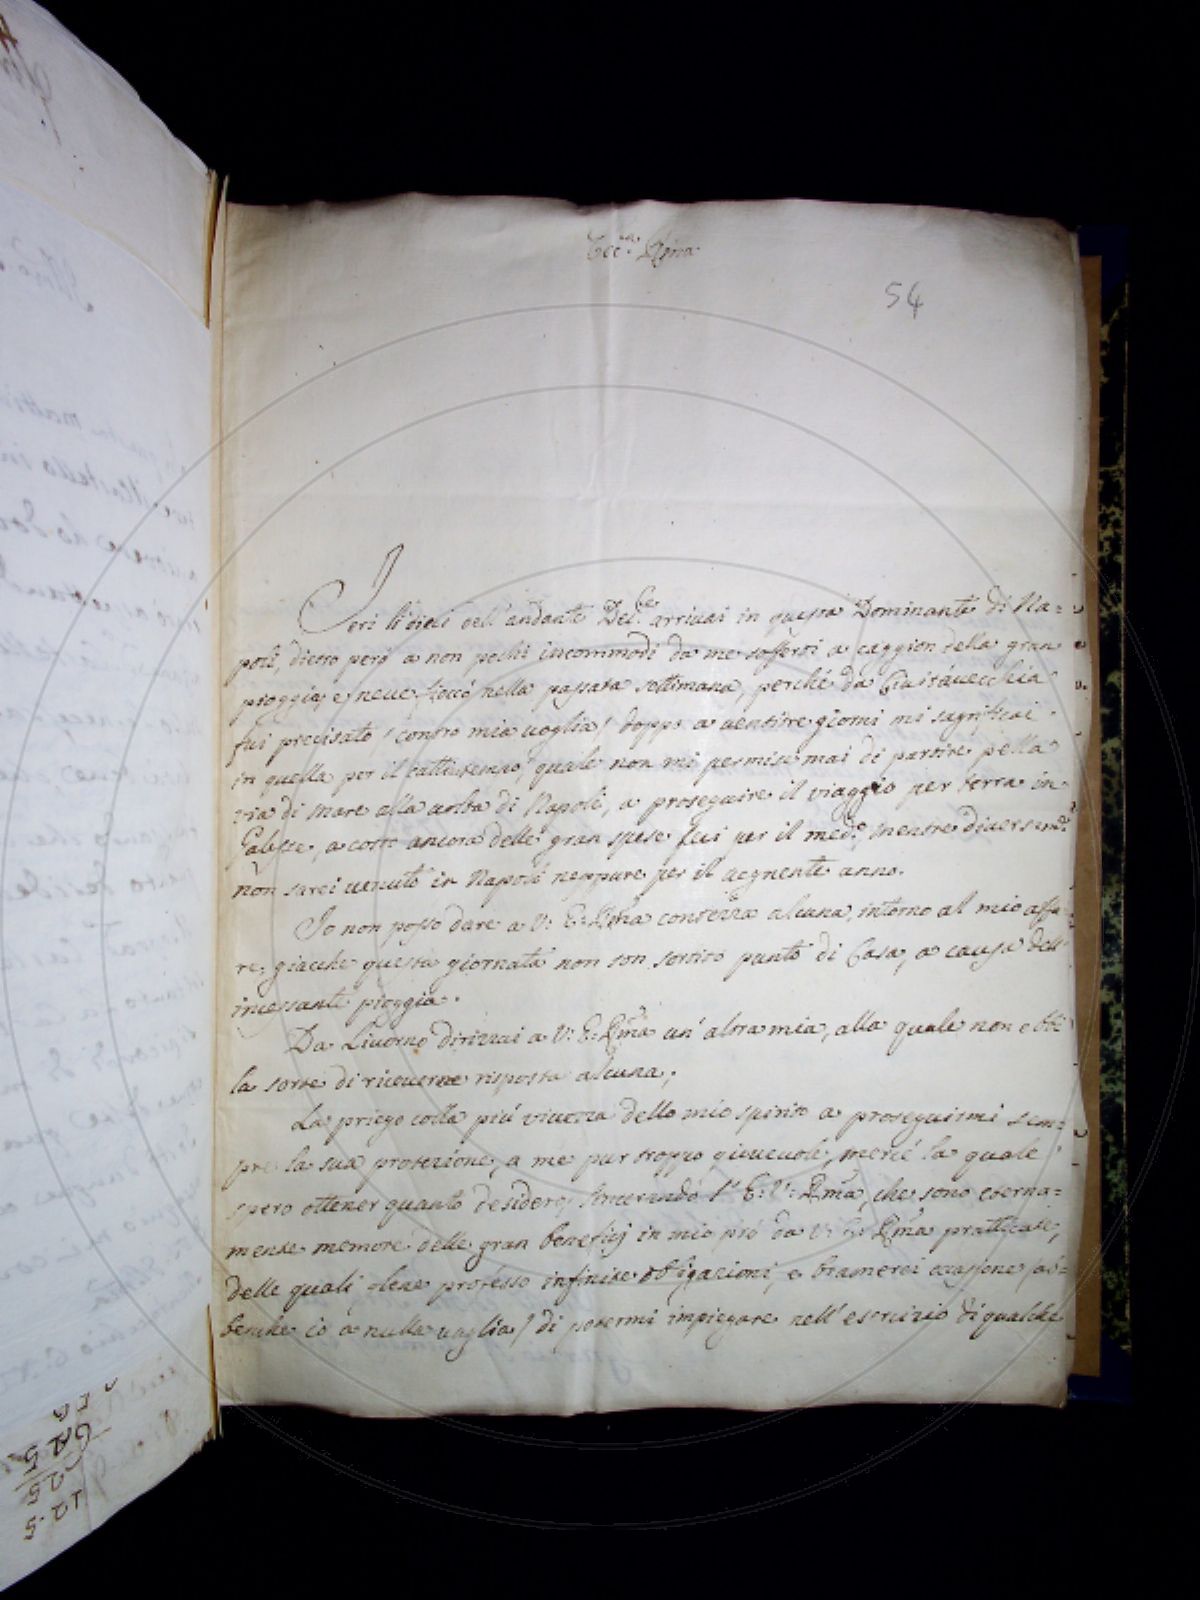 Ecc.za Rma
54
Ieri li dieci dell' andante Dec.e arrivai in questa Dominante di Na=
poli, dietro però a non pochi incommodi da me sofferti a caggion della gran
pioggia, e neve fioccò nella passata settimana, perché da Civitavecchia
fui precisato (contro mia voglia) doppo a ventitre giorni mi sagrificai
in quella per il cattivtempo, quale non mi permise mai di partire pella
via di mare alla volta di Napoli, a proseguire il viaggio per terra in
Galesse, a costo ancora delle gran spese fui per il med.o, mentre diversam.e
non sarei venuto in Napoli neppure per il vegnente anno.
Io non posso dare a V: E: Rma contezza alcuna, intorno al mio affa=
re; giacche questa giornata non son sortito punto di Casa, a causa dell'
incessante pioggia.
Da Livorno dirizzai a V: E: Rma un' altra mia, alla quale non ebbi
la sorte di riceverne risposta alcuna;
La priego colla più vivezza dello mio spirito a proseguirmi sem=
pre la sua protezione, a me pur troppo giovevole, mercé la quale
spero ottener quanto desidero; sincerando l' E: V: Rma, che sono eterna=
mente memore delle gran beneficj in mio pro da V: E: Rma pratticate,
delle quali glene professo infinite obligazioni, e bramerei occasione (ab=
benche io a nulla vaglia) di potermi impiegare nell' esercizio di qualche